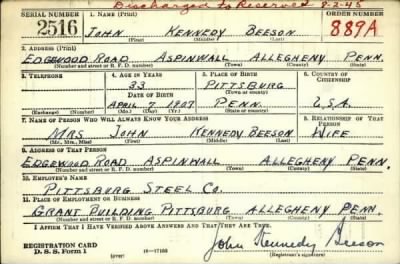 Discharged to Reserved 8-2-45
SERIAL NUMBER 1. NAME (Print) ORDER NUMBER
2516 JOHN KENNEDY BEESON 889A
(First) (Middle) (Last)
2. ADDRESS (Print)
EDGEWOOD ROAD ASPINWALL ALLEGHENY PENN.
(Number and street or R. F. D. number) (Town) (County) (State)
3. TELEPHONE 4. AGE IN YEARS 5. PLACE OF BIRTH 6. COUNTRY OF CITIZENSHIP
33 PITTSBURG
DATE OF BIRTH (Town or county)
APRIL 7 1907 PENN. U.S.A.
(Exchange) (Number) (Mo.) (Day) (Yr.) (State or country)
7. NAME OF PERSON WHO WILL ALWAYS KNOW YOUR ADDRESS 8. RELATIONSHIP OF THAT PERSON
MRS JOHN KENNEDY BEESON WIFE
(Mr., Mrs., Miss) (First) (Middle) (Last)
9. ADDRESS OF THAT PERSON
EDGEWOOD ROAD ASPINWALL ALLEGHENY PENN.
(Number and street or R. F. D. number) (Town) (County) (State)
10. EMPLOYER'S NAME
PITTSBURG STEEL CO.
11. PLACE OF EMPLOYMENT OR BUSINESS
GRANT BUILDING PITTSBURG ALLEGHENY PENN.
(Number and street or R. F. D. number) (Town) (County) (State)
I AFFIRM THAT I HAVE VERIFIED ABOVE ANSWERS AND THAT THEY ARE TRUE.
REGISTRATION CARD
D. S. S. Form 1 John Kennedy Beeson
(Registrant's signature)